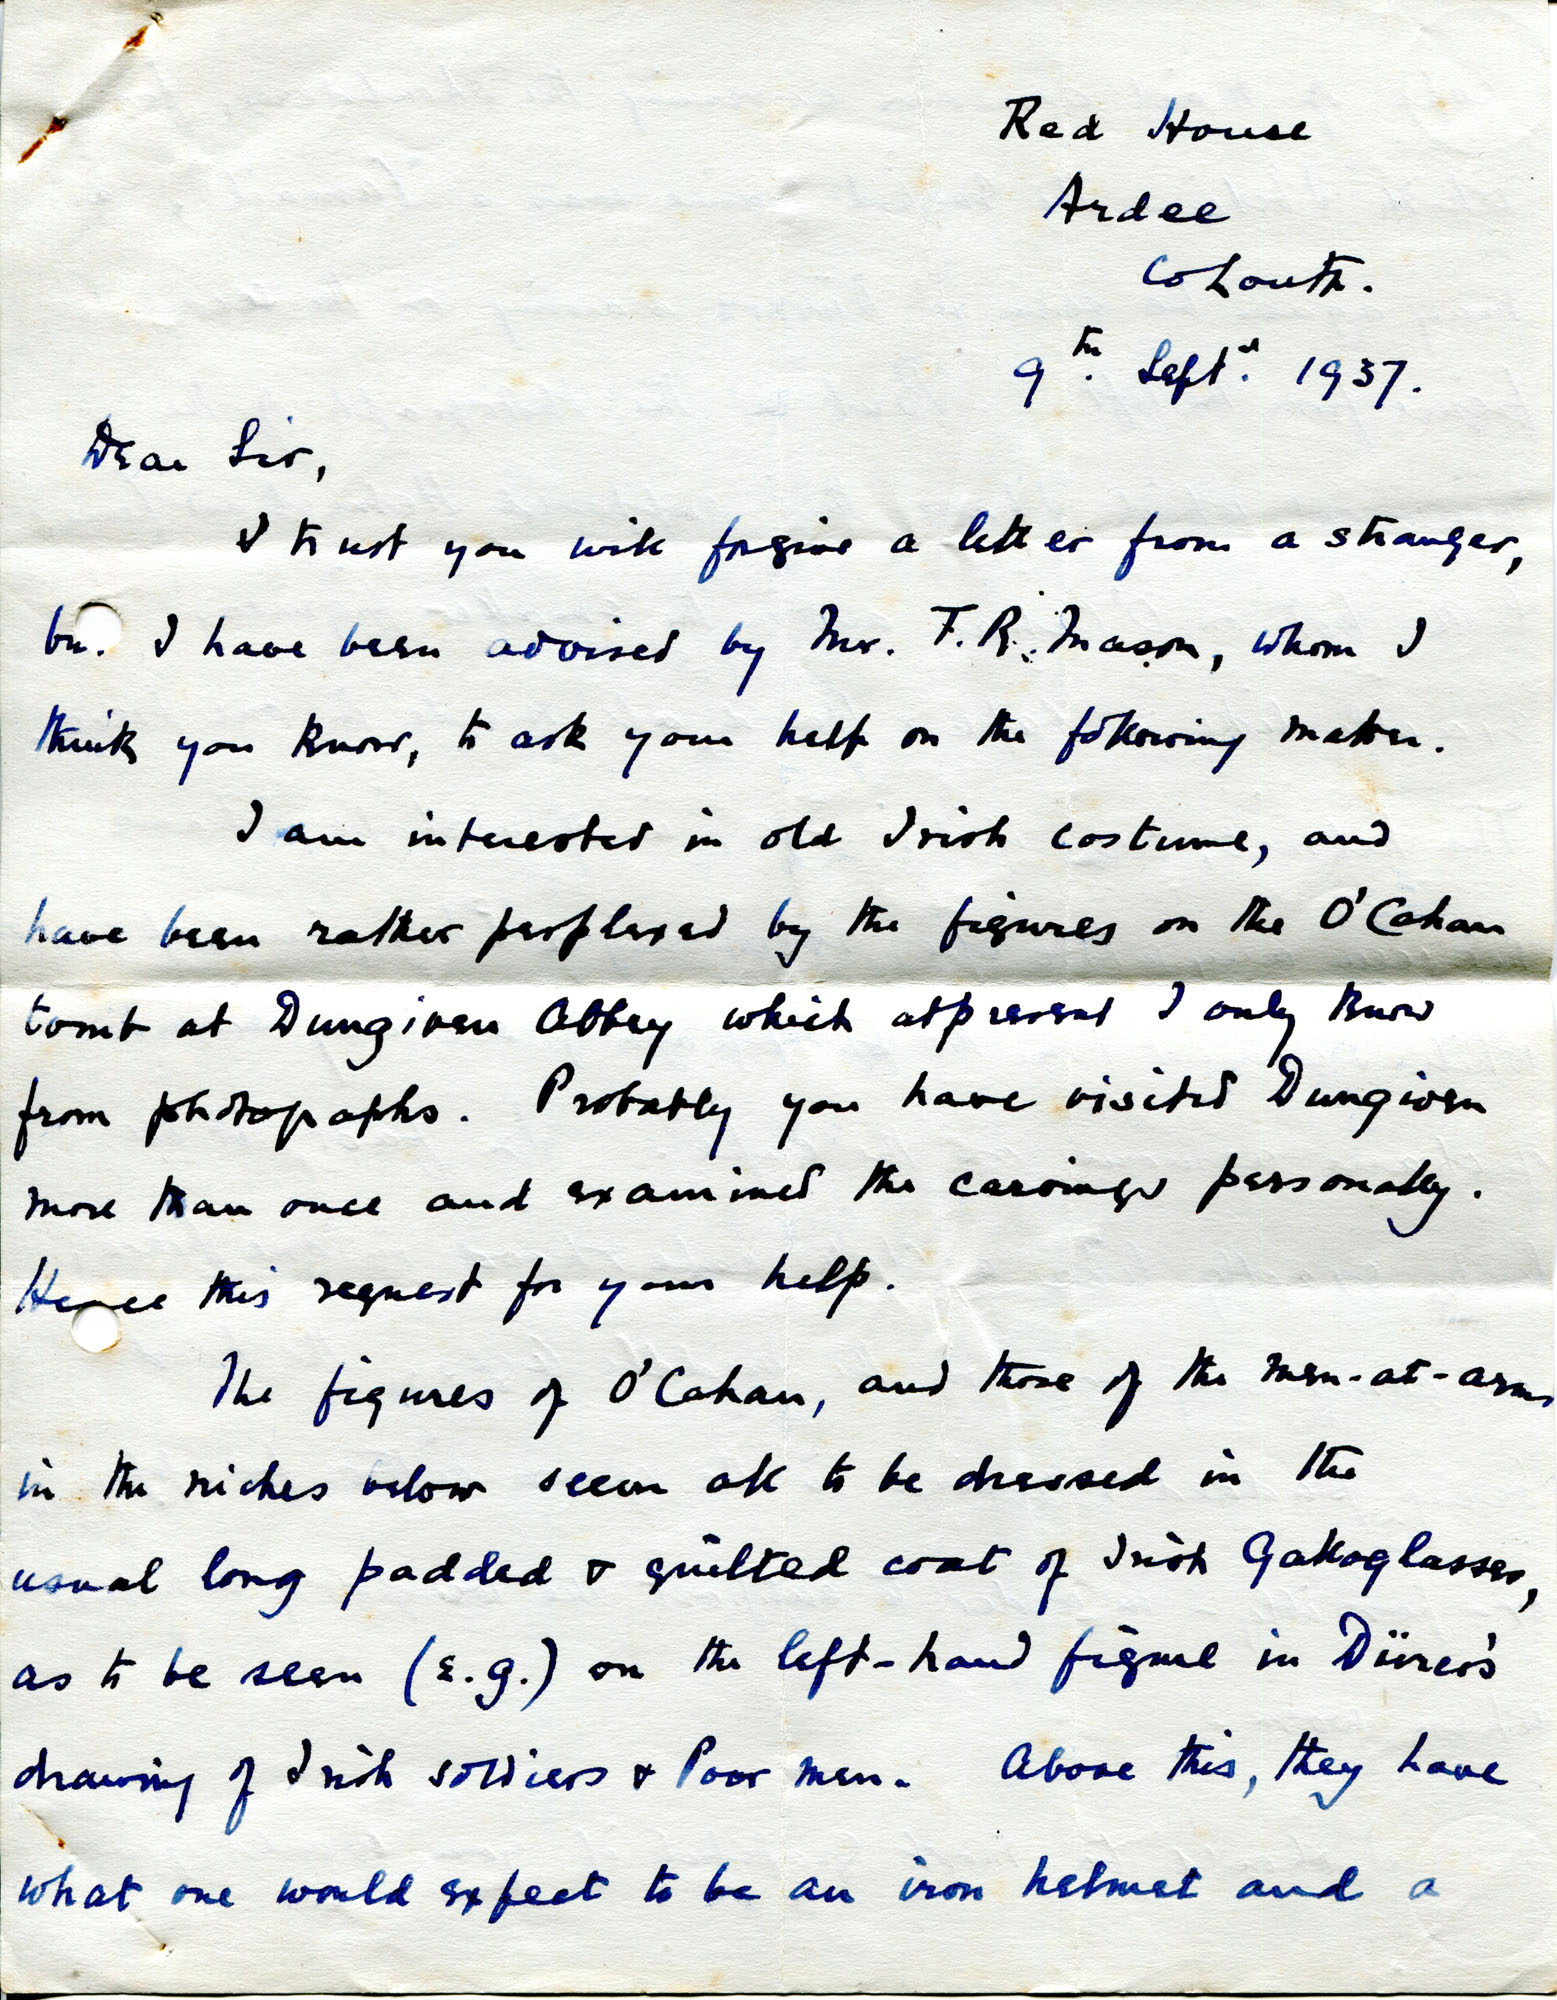 Red House
Ardee
Co Louth.
9th. Septr. 1937.
Dear Sir,
I trust you will forgive a letter from a stranger,
bu. I have been advised by Mr. T. R. Mason, whom I
think you know, to ask your help on the following matter.
I am interested in old Irish costume, and
have been rather perplexed by the figures on the O'Cahan
tomb at Dungiven Abbey which at present I only know
from photographs. Probably you have visited Dungiven
more than once and examined the carvings personally.
Hence this request for your help.
The figures of O'Cahan, and those of the men-at-arms
in the niches below seem all to be dressed in the
usual long padded & quilted coat of Irish Galloglasses,
as to be seen (e.g.) on the left-hand figure in Dürer's
drawing of Irish soldiers & Poor men. Above this, they have
what one would expect to be an iron helmet and a